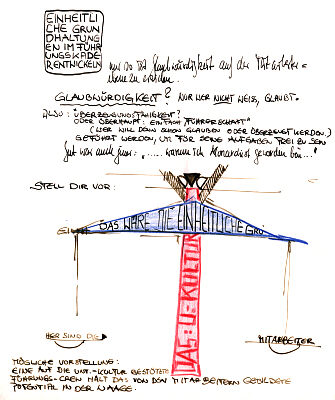 EINHEITLI
CHE GRUN
DHALTUNG
EN IM FÜHR
UNGSKADE
RENTWICKELN
nur so ist Glaubwürdigkeit auf der Mitarbeiter=
ebene zu erzielen.
GLAUBWÜRDIGKEIT? NUR WER NICHT WEISS, GLAUBT.
ALSO: ÜBERZEUGUNGSFÄHIGKEIT?
ODER ÜBERHAUPT: EINFACH "FÜHRERSCHAFT"
(WER WILL DENN SCHON GLAUBEN ODER ÜBERZEUGT WERDEN)
GEFÜHRT WERDEN, UM FÜR SEINE AUFGABEN FREI ZU SEIN
Gut war auch "..... warum ich Monarchist geworden bin...!"
STELL DIR VOR:
DAS WÄRE DIE EINHEITLICHE GRU
DAS U-KULTUR
HIER SIND DIE
MITARBEITER
MÖGLICHE VORSTELLUNG:
EINE AUF DIE UNT.-KULTUR GESTÜTZTE
FÜHRUNGS-CREW HÄLT DAS VON DEN MITARBEITERN GEBILDETE
POTENTIAL IN DER WAAGE.